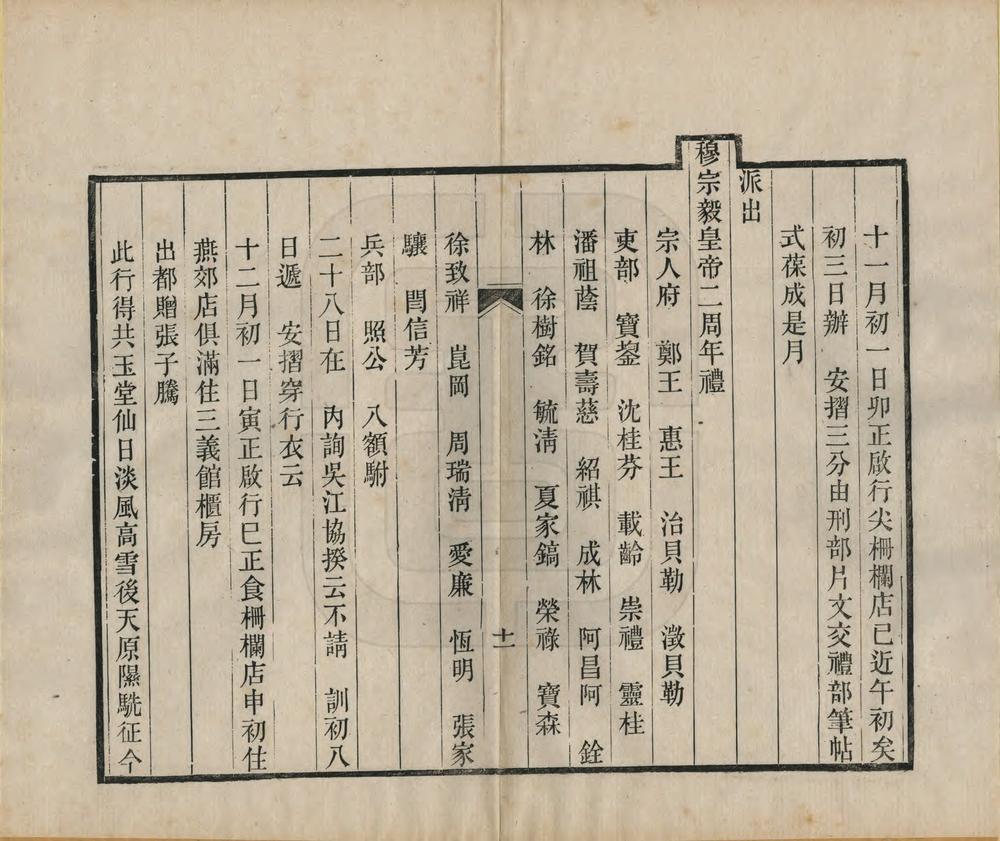 十一月初一日卯正啟行尖柵欄店已近午初矣
初三日辦　安摺三分由刑部片文交禮部筆帖
式葆成是月
派出
穆宗毅皇帝二周年禮
宗人府　鄭王　惠王　治貝勒　澂貝勒
吏部　寶鋆　沈桂芬　載齡　崇禮　靈桂
潘祖蔭　賀壽慈　紹祺　成林　阿昌阿　銓
林　徐樹銘　毓清　夏家鎬　榮祿　寶森
十一
徐致祥　崑岡　周瑞清　愛廉　恆明　張家
驤　閆信芳
兵部　照公　八額駙
二十八日在　內詢吳江協揆云不請　訓初八
日遞　安摺穿行衣云
十二月初一日寅正啟行巳正食柵欄店申初住
燕郊店俱滿住三義館櫃房
出都贈張子騰
此行得共玉堂仙日淡風高雪後天原隰駪征今